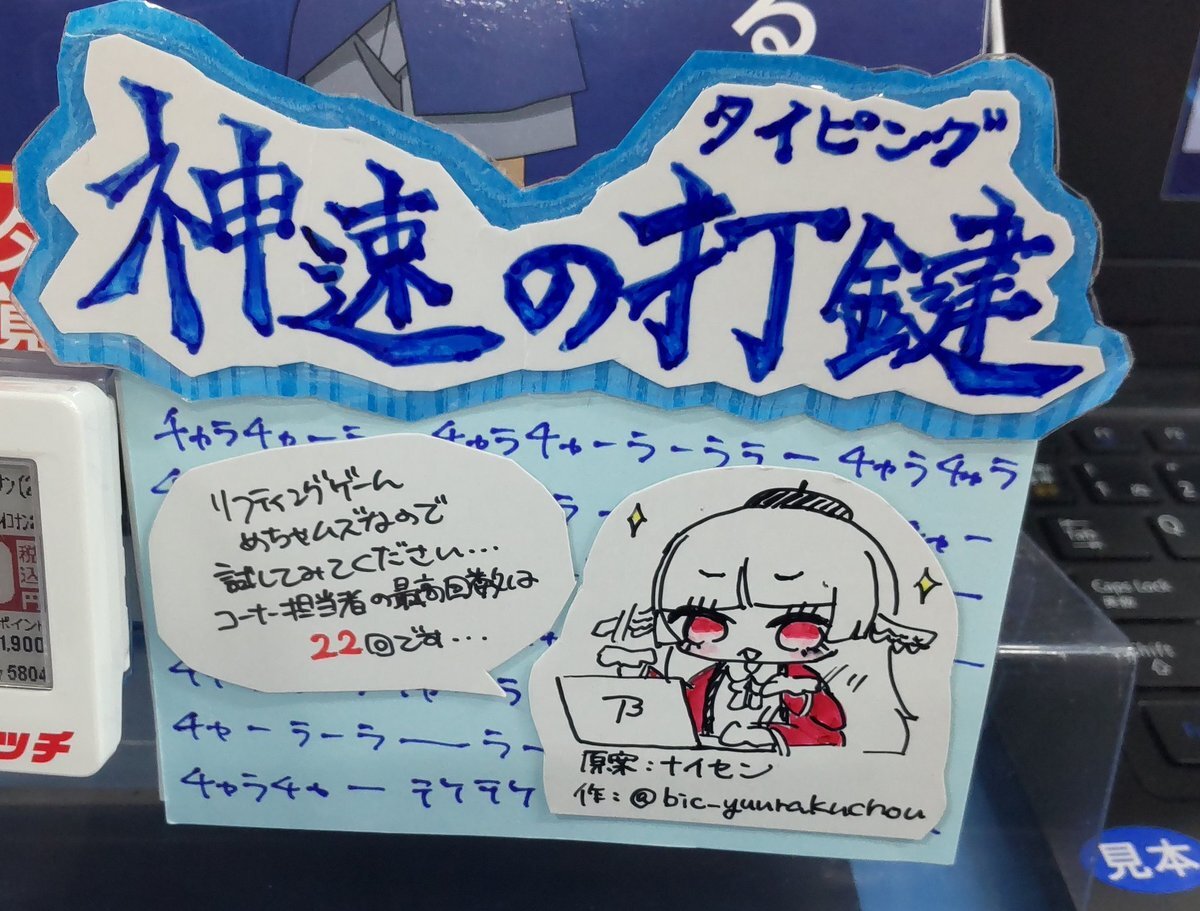 る
タイピング
神速の打鍵
チャラチャーラー チャラチャーラーララー チャラチャラ
リフティングゲーム
めちゃムズなので
試してみてください…
コーナー担当者の最高回数は
22回です…
チャーラーラーーラー
チャラチャーテケテケ
原案:ナイセン
作:@bic-yuurakuchou
税込
円
ポイント
1,900
5804
ッチ
Caps Lock
Shift
Q
見本